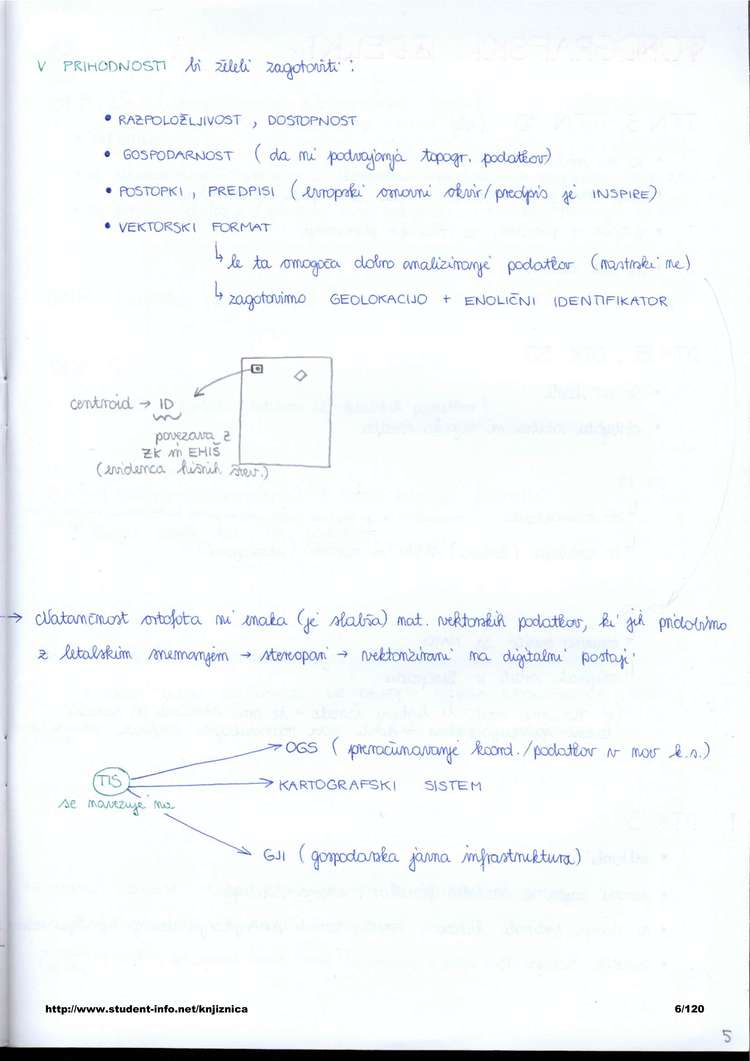 V PRIHODNOSTI bi želeli zagotoviti :
• RAZPOLOŽLJIVOST , DOSTOPNOST
• GOSPODARNOST ( da ni podvajanja topogr. podatkov)
• POSTOPKI , PREDPISI ( evropski osnovni okvir/predpis je INSPIRE)
• VEKTORSKI FORMAT
↳ le ta omogoča dobro analiziranje podatkov (rastrski ne)
↳ zagotovimo GEOLOKACIJO + ENOLIČNI IDENTIFIKATOR
centroid → ID
povezava z
ZK in EHIŠ
(evidenca hišnih štev.)
→ Natančnost ortofota ni enaka (je slabša) nat. vektorskih podatkov, ki jih pridobimo
z letalskim snemanjem → stereopari → vektorizirani na digitalni postaji
OGS ( preračunavanje koord./podatkov v nov k.s.)
TIS
KARTOGRAFSKI SISTEM
se navezuje na
GJI ( gospodarska javna infrastruktura)
http://www.student-info.net/knjiznica
6/120
5